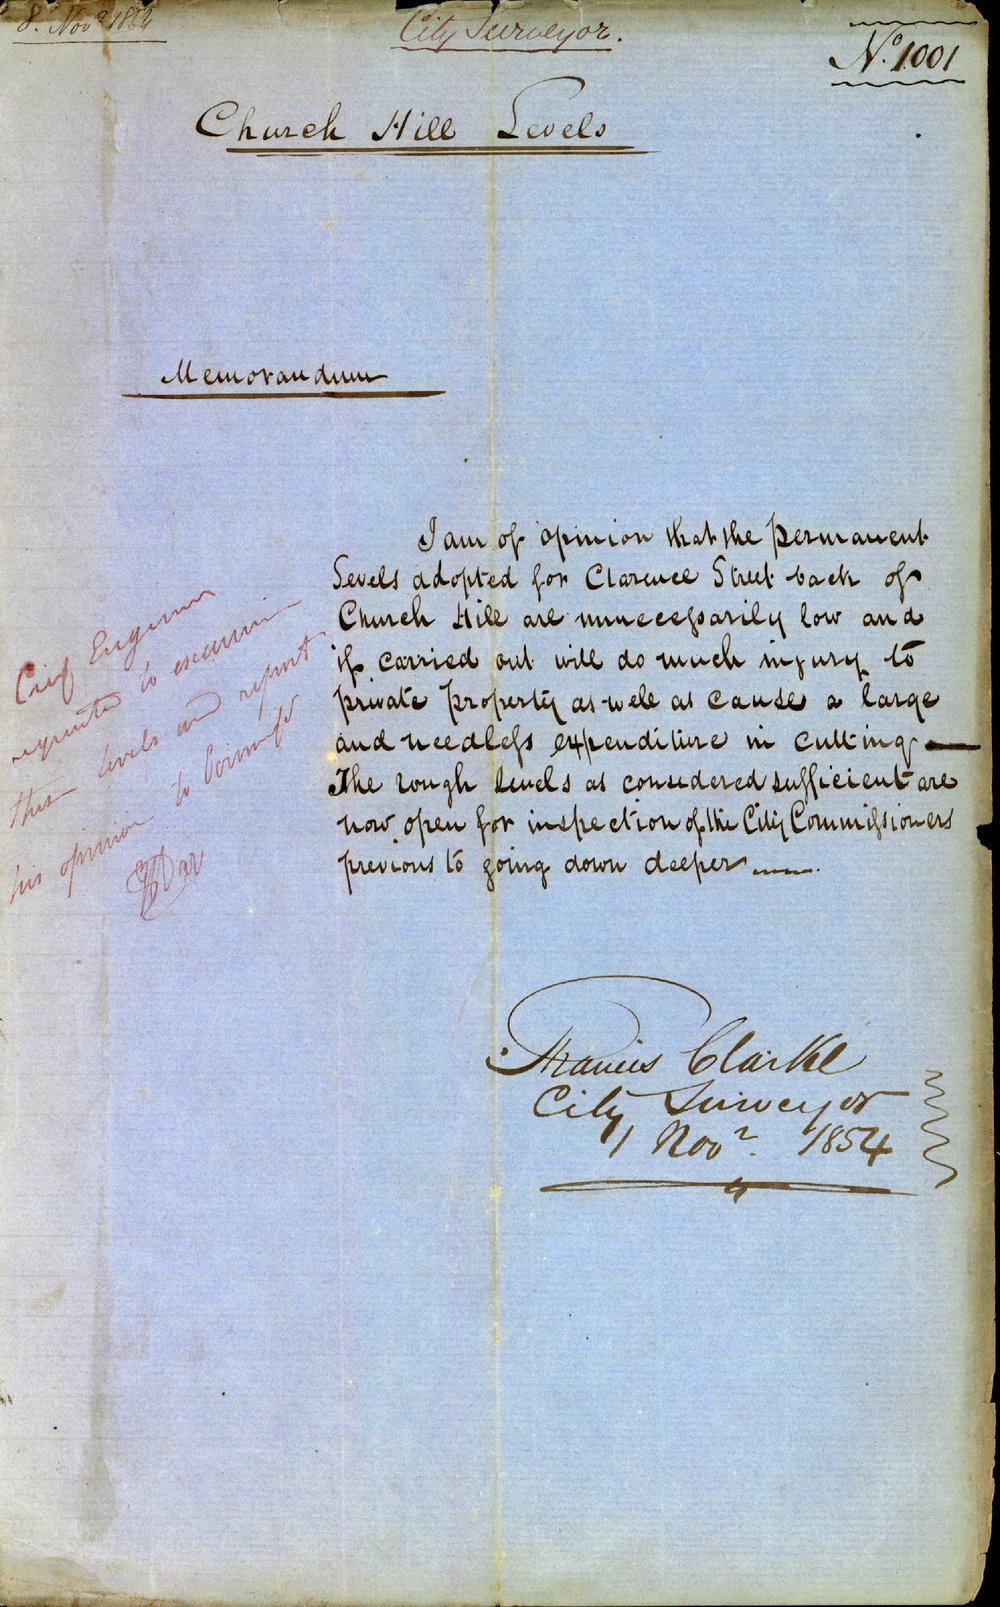 8. Novr 1854
City Surveyor.
No. 1001
Church Hill Levels
Memorandum
I am of opinion that the permanent
Levels adopted for Clarence Street back of
Church Hill are unnecessarily low and
if carried out will do much injury to
private property as well as cause a large
and needless expenditure in cutting —
The rough levels as considered sufficient are
now open for inspection of the City Commissioners
previous to going down deeper
Francis Clarke
City Surveyor
1 Novr. 1854
requested to examine
levels and report
his opinion to